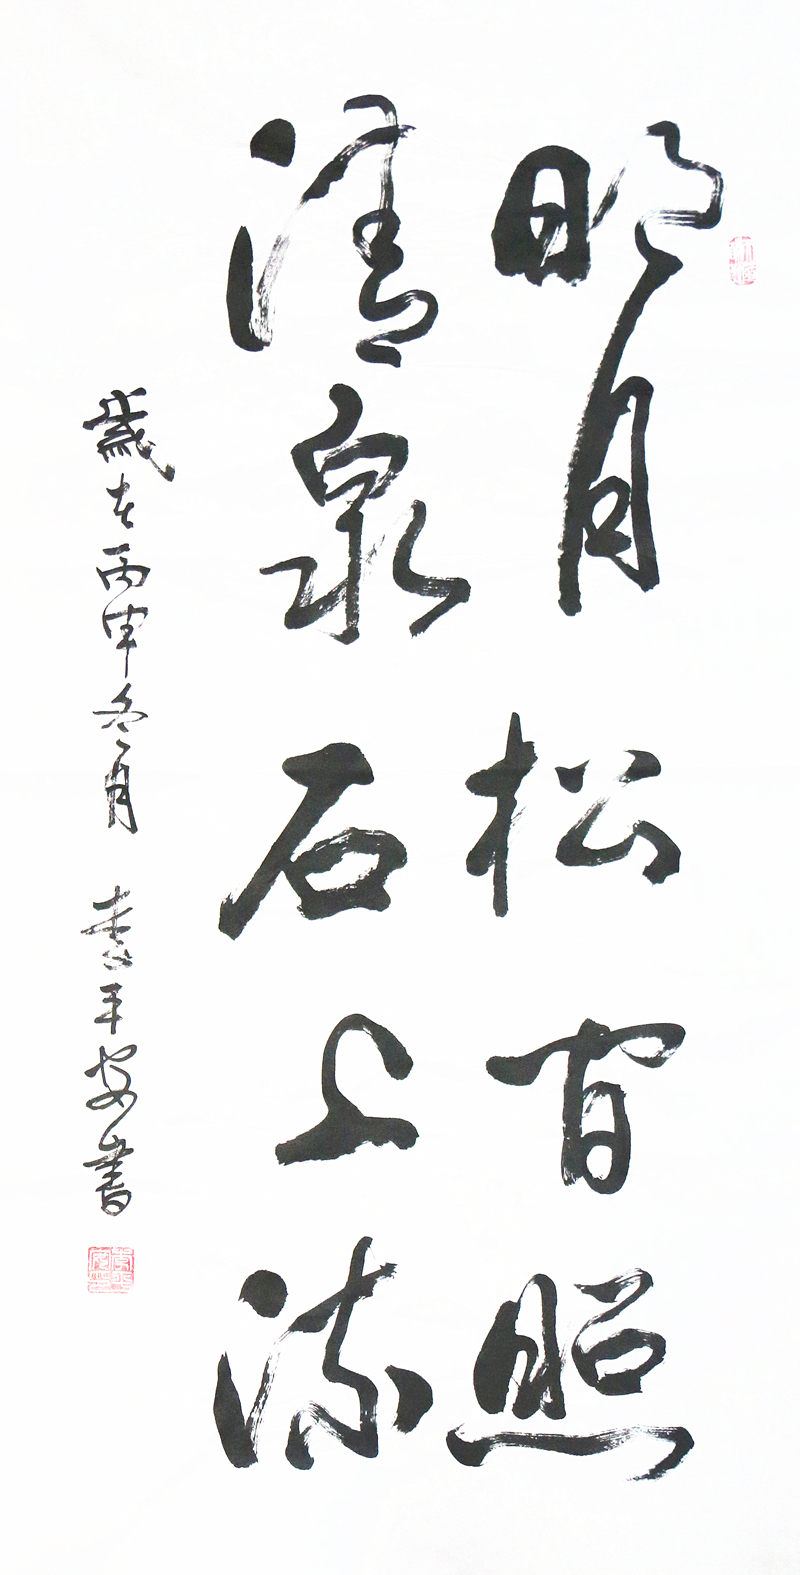 明月松间照
清泉石上流
歲在丙申冬月 李平安書